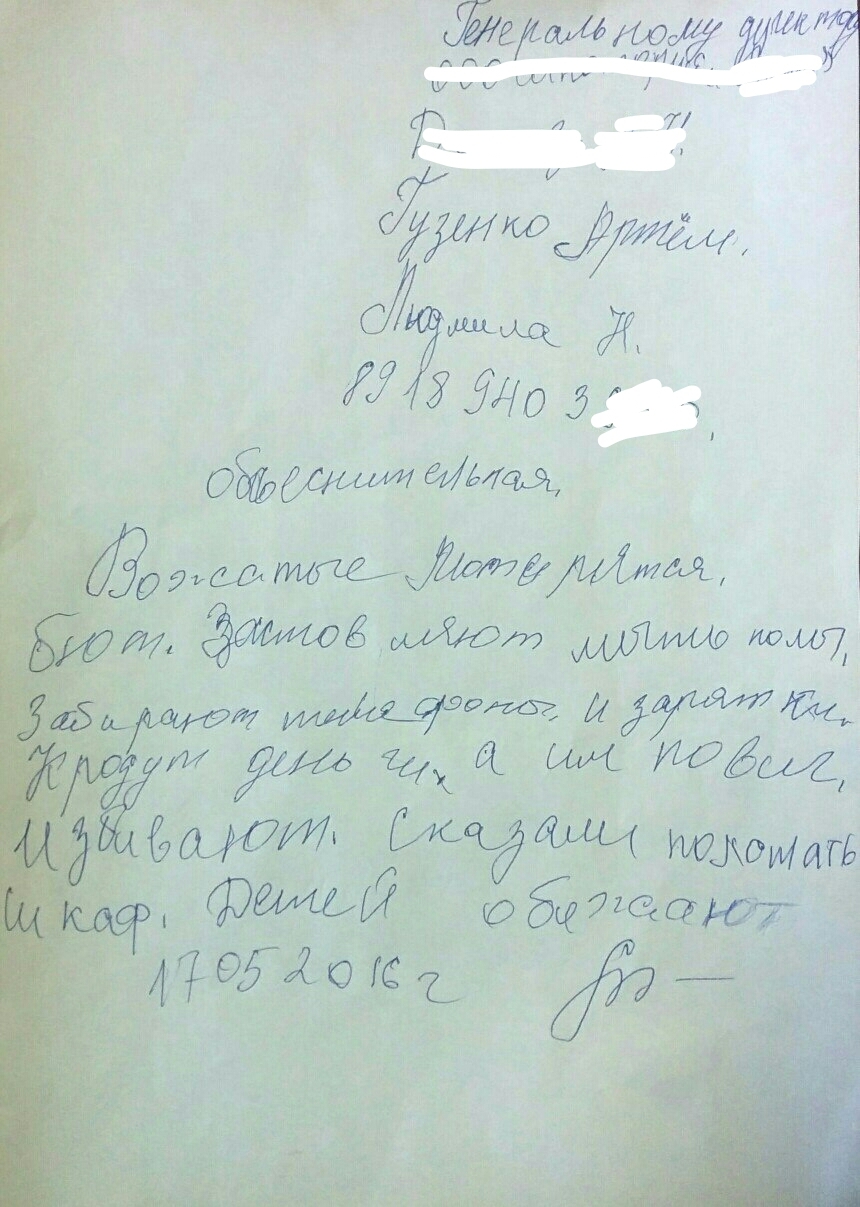 Генеральному директору
ООО
Гузенко Артём.
Людмила Н.
8918 940 3
объеснительная.
Вожатые Матерятся,
бют. Заставляют мыть полы,
Забирают телефоны, и зарятки.
Крадут деньги, а им повиг,
избивают. Сказали поломать
шкаф. Детей обежают
17 05 2016 г